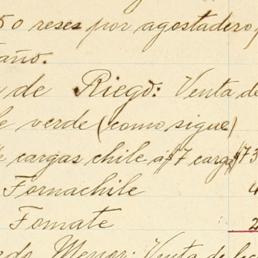 50 reses por agostadero p
año.
de Riego: Venta de
le verde (como sigue)
cargas chile a $7 carga $73
Fornachile 4
Fomate 2
Menor: Venta de